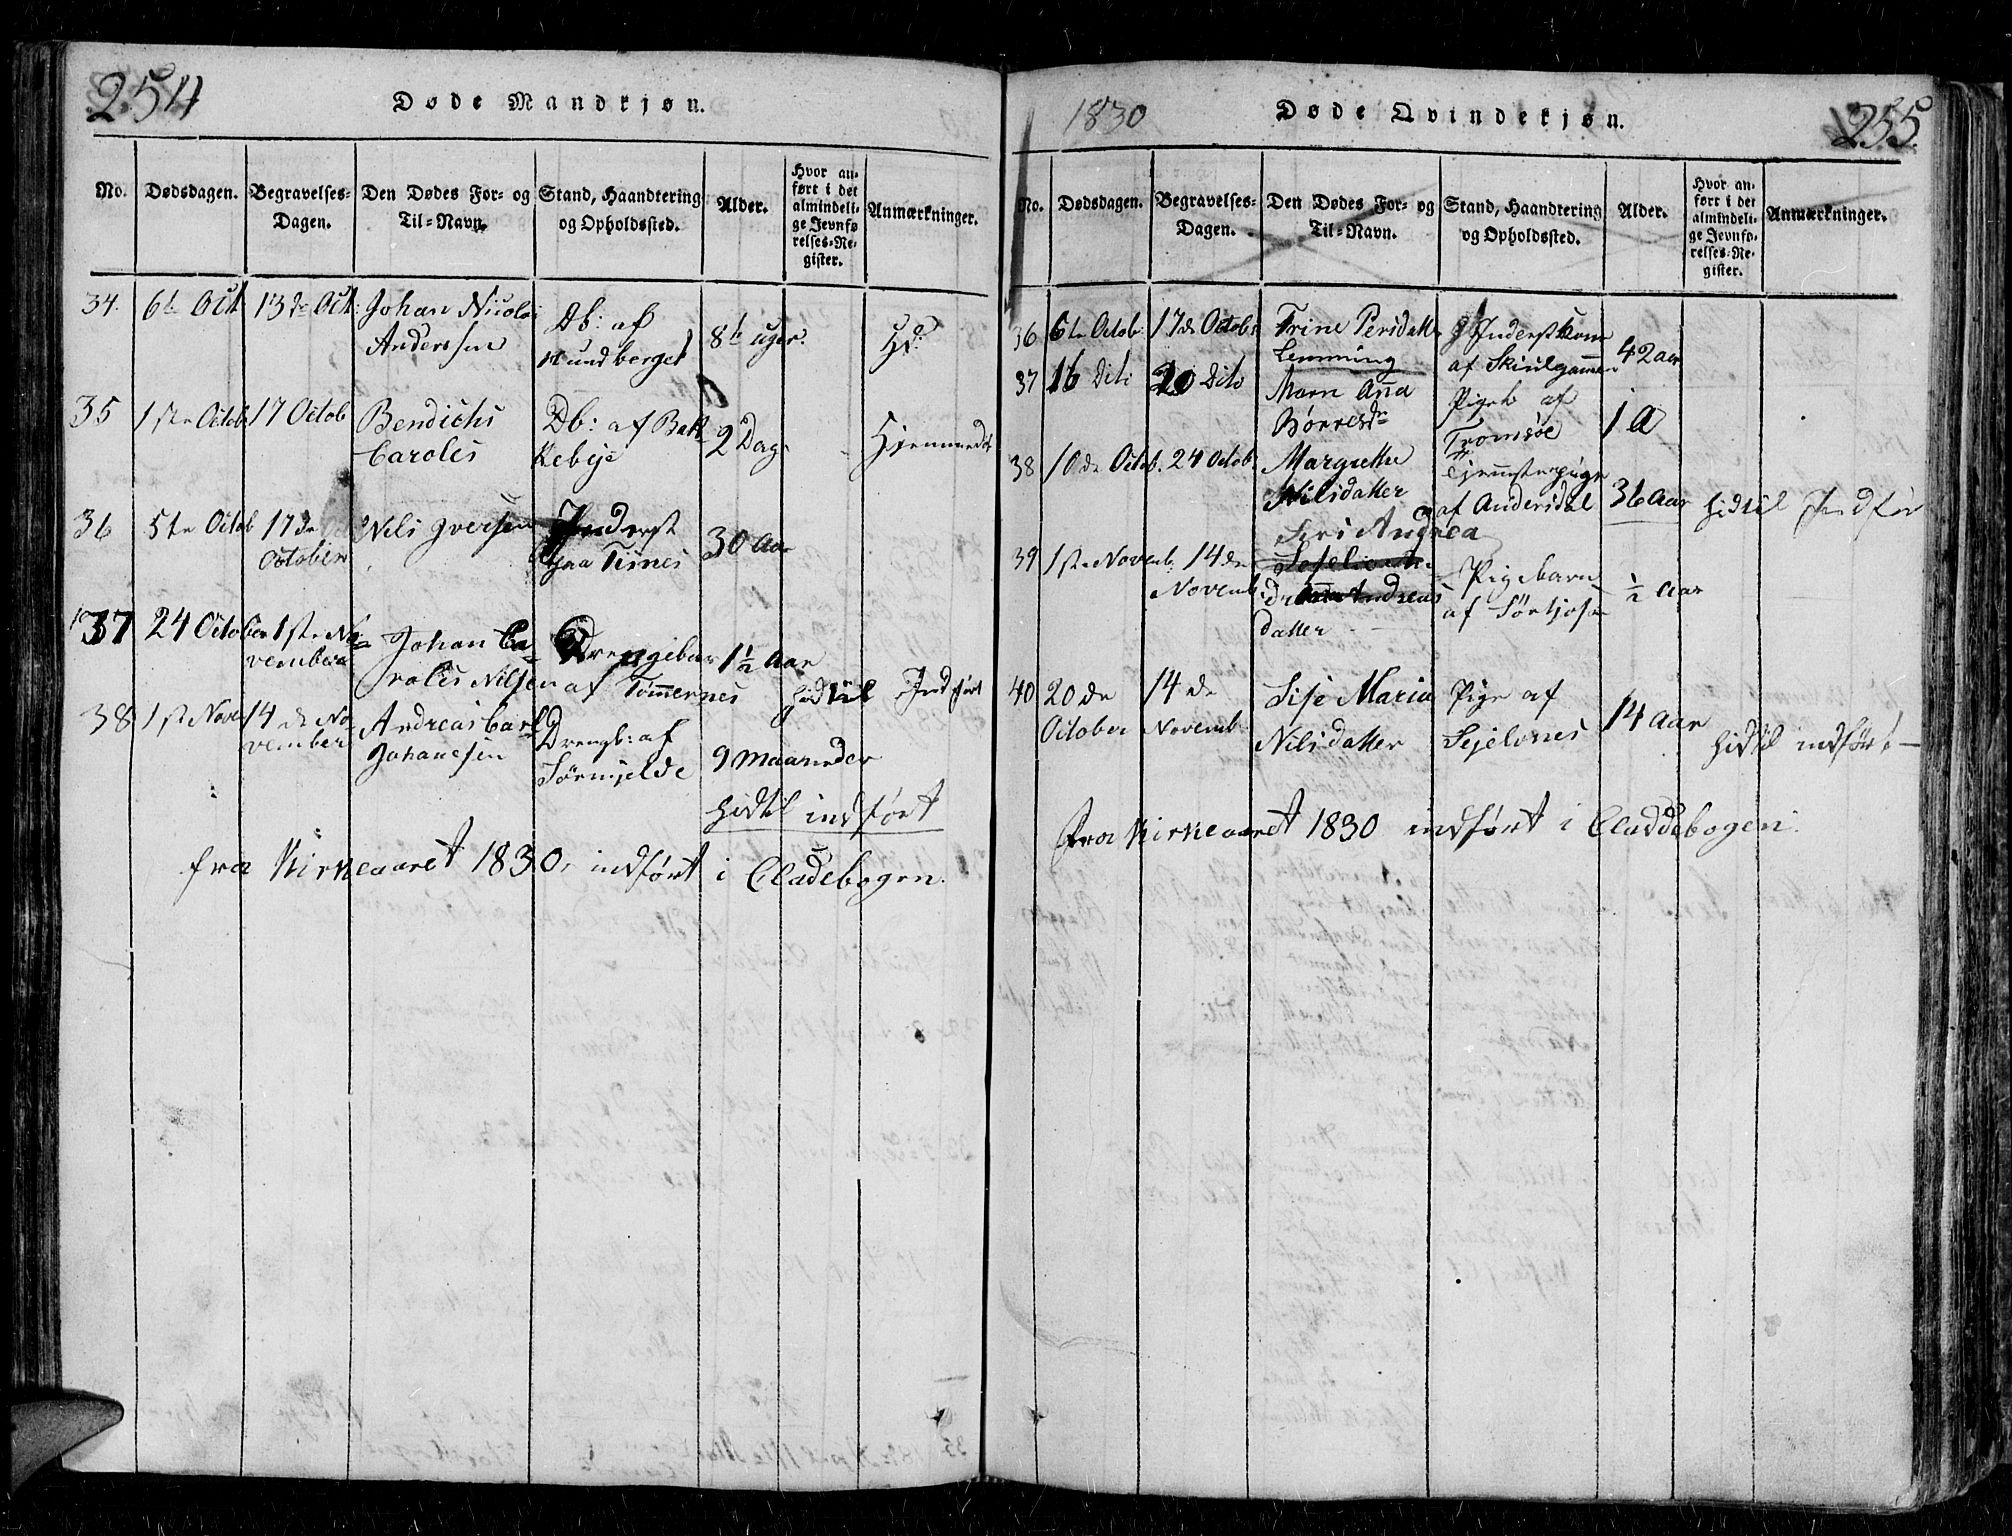 254
Døde Mandkjøn.
No.
Dødsdagen.
Begravelses-
Dagen.
Den Dødes For- og
Til-Navn.
Stand, Haandtering
og Opholdssted.
Alder.
Hvor an-
ført i det
almindeli-
ge Jevnfø
relses-Re-
gister.
Anmærkninger.
34. 6te Oct 13de Oct: Johan Nicolai
Anderssen
Db: af
Kundborget
8te uger.
35 1ste Octob 17 Octob Bendichs
Caroles
Db: af Bak
Kebye
2 Dag
Hjemmedøbt
36 5te Octob 17de
October
Nils Iversen
Inderst
paa Tisnes
30 Aar
37 24 October 1ste No-
vember
Johan Ca-
roles Nilsen
Drengebarn
af Tømmernes
1½ Aar
hidtil Indført
38 1ste Nove 14de No-
vember
Andreas Carl
Johanesen
Drengb: af
Sørmjelde
9 Maaneder
hidtil indført
fra Kirkeaaret 1830, indført i Cladebogen.
1830
Døde Qvindekjøn.
255.
No.
Dødsdagen.
Begravelses-
Dagen.
Den Dødes For- og
Til-Navn.
Stand, Haandtering
og Opholdssted.
Alder.
Hvor an-
ført i det
almindeli-
ge Jevnfø-
relses-Re-
gister.
Anmærkninger.
36 6te Octob 17de Octob Trine Persdatter
Lemming
Inderstkone
af Skiulgammen
42 aar
37 16 Dito 20 Dito Maren Anna
Børresdr
Pigeb af
Tromsøe
1 A
38 10de Octob. 24 Octob Margrethe
Nilsdatter
Tjenestepige
af Andersdal
36 Aar hidtil Indført
39 1ste Novemb. 14de
Novemb
Siri Andrea
datter
Pigebarn
af Sørtjosen
½ Aar
40 20de
October
14de
Novemb.
Sise Maria
Nilsdatter
Pige af
Sejelvnes
14 Aar
hidtil indført
fra Kirkeaaret 1830 indført i Claddebogen.